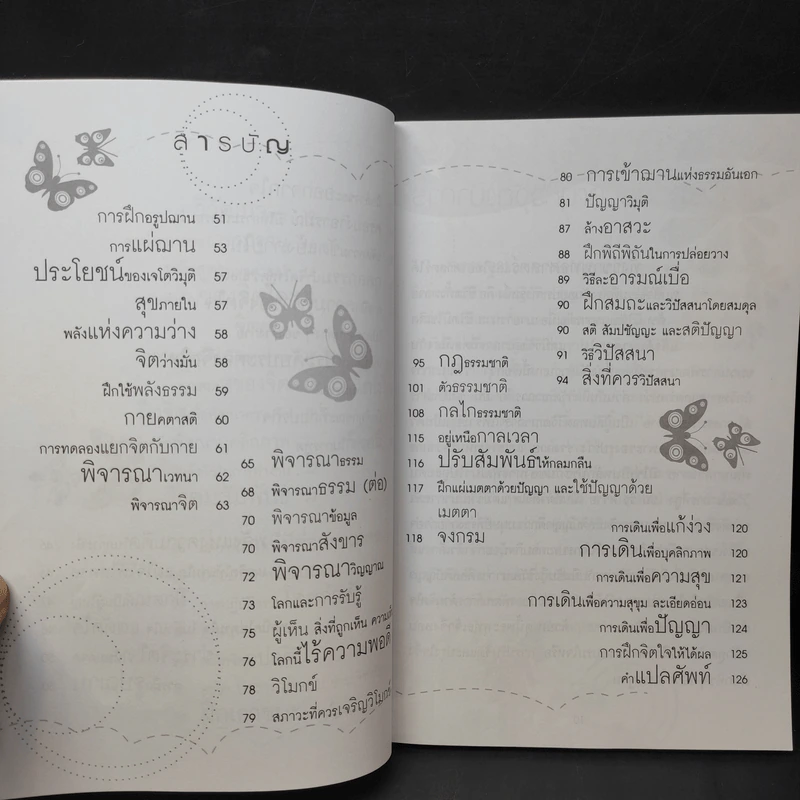 สารบัญ
การฝึกอรูปฌาน 51
การแผ่ฌาน 53
ประโยชน์ของเจโตวิมุติ 57
สุขภายใน 57
พลังแห่งความว่าง 58
จิตว่างมั่น 58
ฝึกใช้พลังธรรม 59
กายคตาสติ 60
การทดลองแยกจิตกับกาย 61
พิจารณาเวทนา 62
พิจารณาจิต 63
65 พิจารณาธรรม
68 พิจารณาธรรม (ต่อ)
70 พิจารณาข้อมูล
70 พิจารณาสังขาร
72 พิจารณาวิญญาณ
73 โลกและการรับรู้
75 ผู้เห็น สิ่งที่ถูกเห็น
76 โลกนี้ไร้ความพอดี
78 วิโมกข์
79 สภาวะที่ควรเจริญวิโมกข์
80 การเข้าฌจนแห่งธรรมอันเอก
81 ปัญญาวิมุติ
87 ล้างอาสวะ
88 ฝึกพิถีพิถันในการปล่อยวาง
89 วิธีละอารมณ์เบื่อ
90 ฝึกสมถะและวิปัสสนาโดยสมดุล
90 สติ สัมปชัญญะ และสติปัญญา
91 วิธีวิปัสสนา
94 สิ่งที่ควรวิปัสสนา
95 กฎธรรมชาติ
101 ตัวธรรมชาติ
108 กลไกธรรมชาติ
115 อยู่เหนือกาลเวลา
116 ปรับสัมพันธ์ให้กลมกลืน
117 ฝึกแผ่เมตตาด้วยปัญญา และใช้ปัญญาด้วย
เมตตา
118 จงกรม
การเดินเพื่อแก้ง่วง 120
การเดินเพื่อบุคลิกภาพ 120
การเดินเพื่อความสุข 121
การเดินเพื่อความสุขุม ละเอียดอ่อน 123
การเดินเพื่อปัญญา 124
การฝึกจิตใจให้ได้ผล 125
คำแปลศัพท์ 126